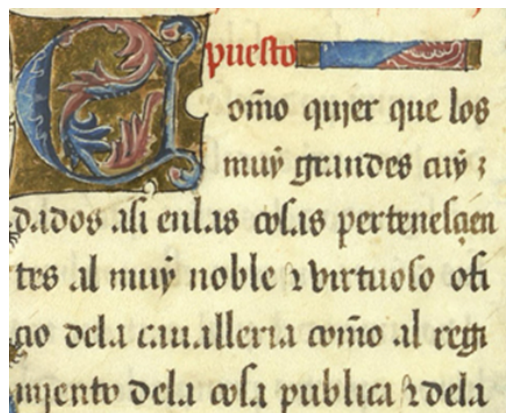 puesto
Como quier que los
muy grandes cuy
dados asi en las cosas pertenesçien
tes al muy noble τ virtuoso ofi
çio dela caualleria como al regi
miento dela cosa publica τ dela